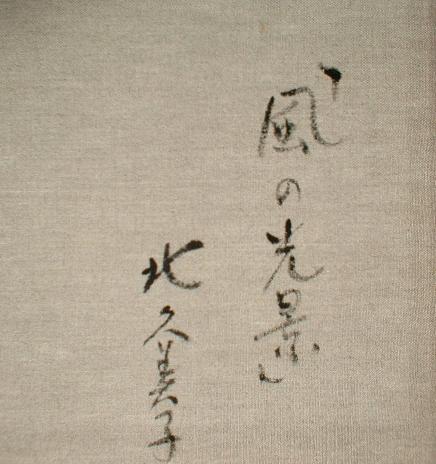 「風の光景」
北久美子